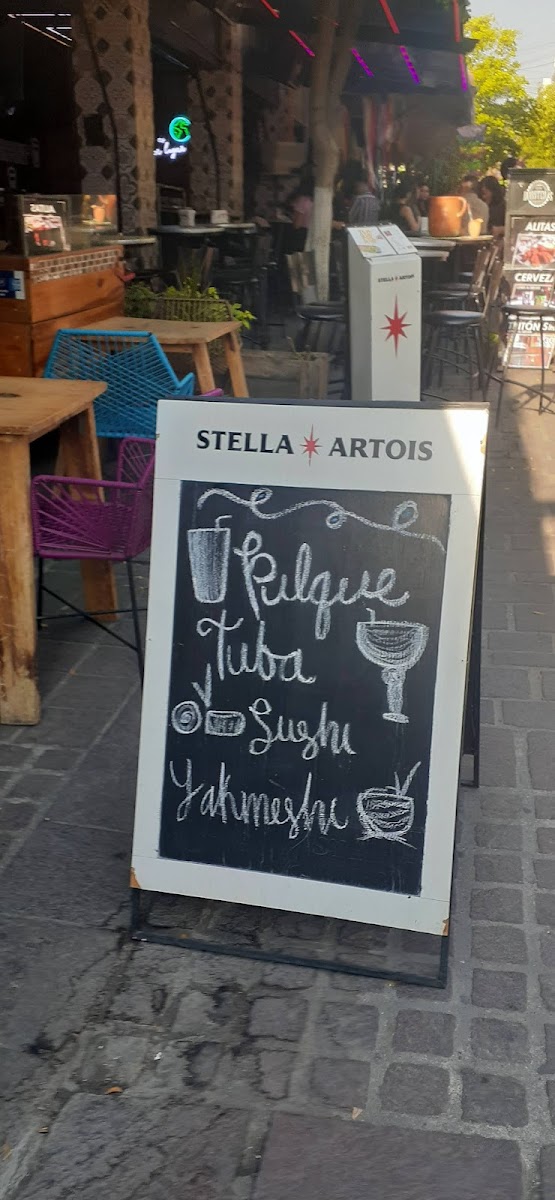 STELLA ARTOIS
ALITAS
CERVEZA
STELLA ARTOIS
Pulque
Tuba
Sushi
Yakmeshi